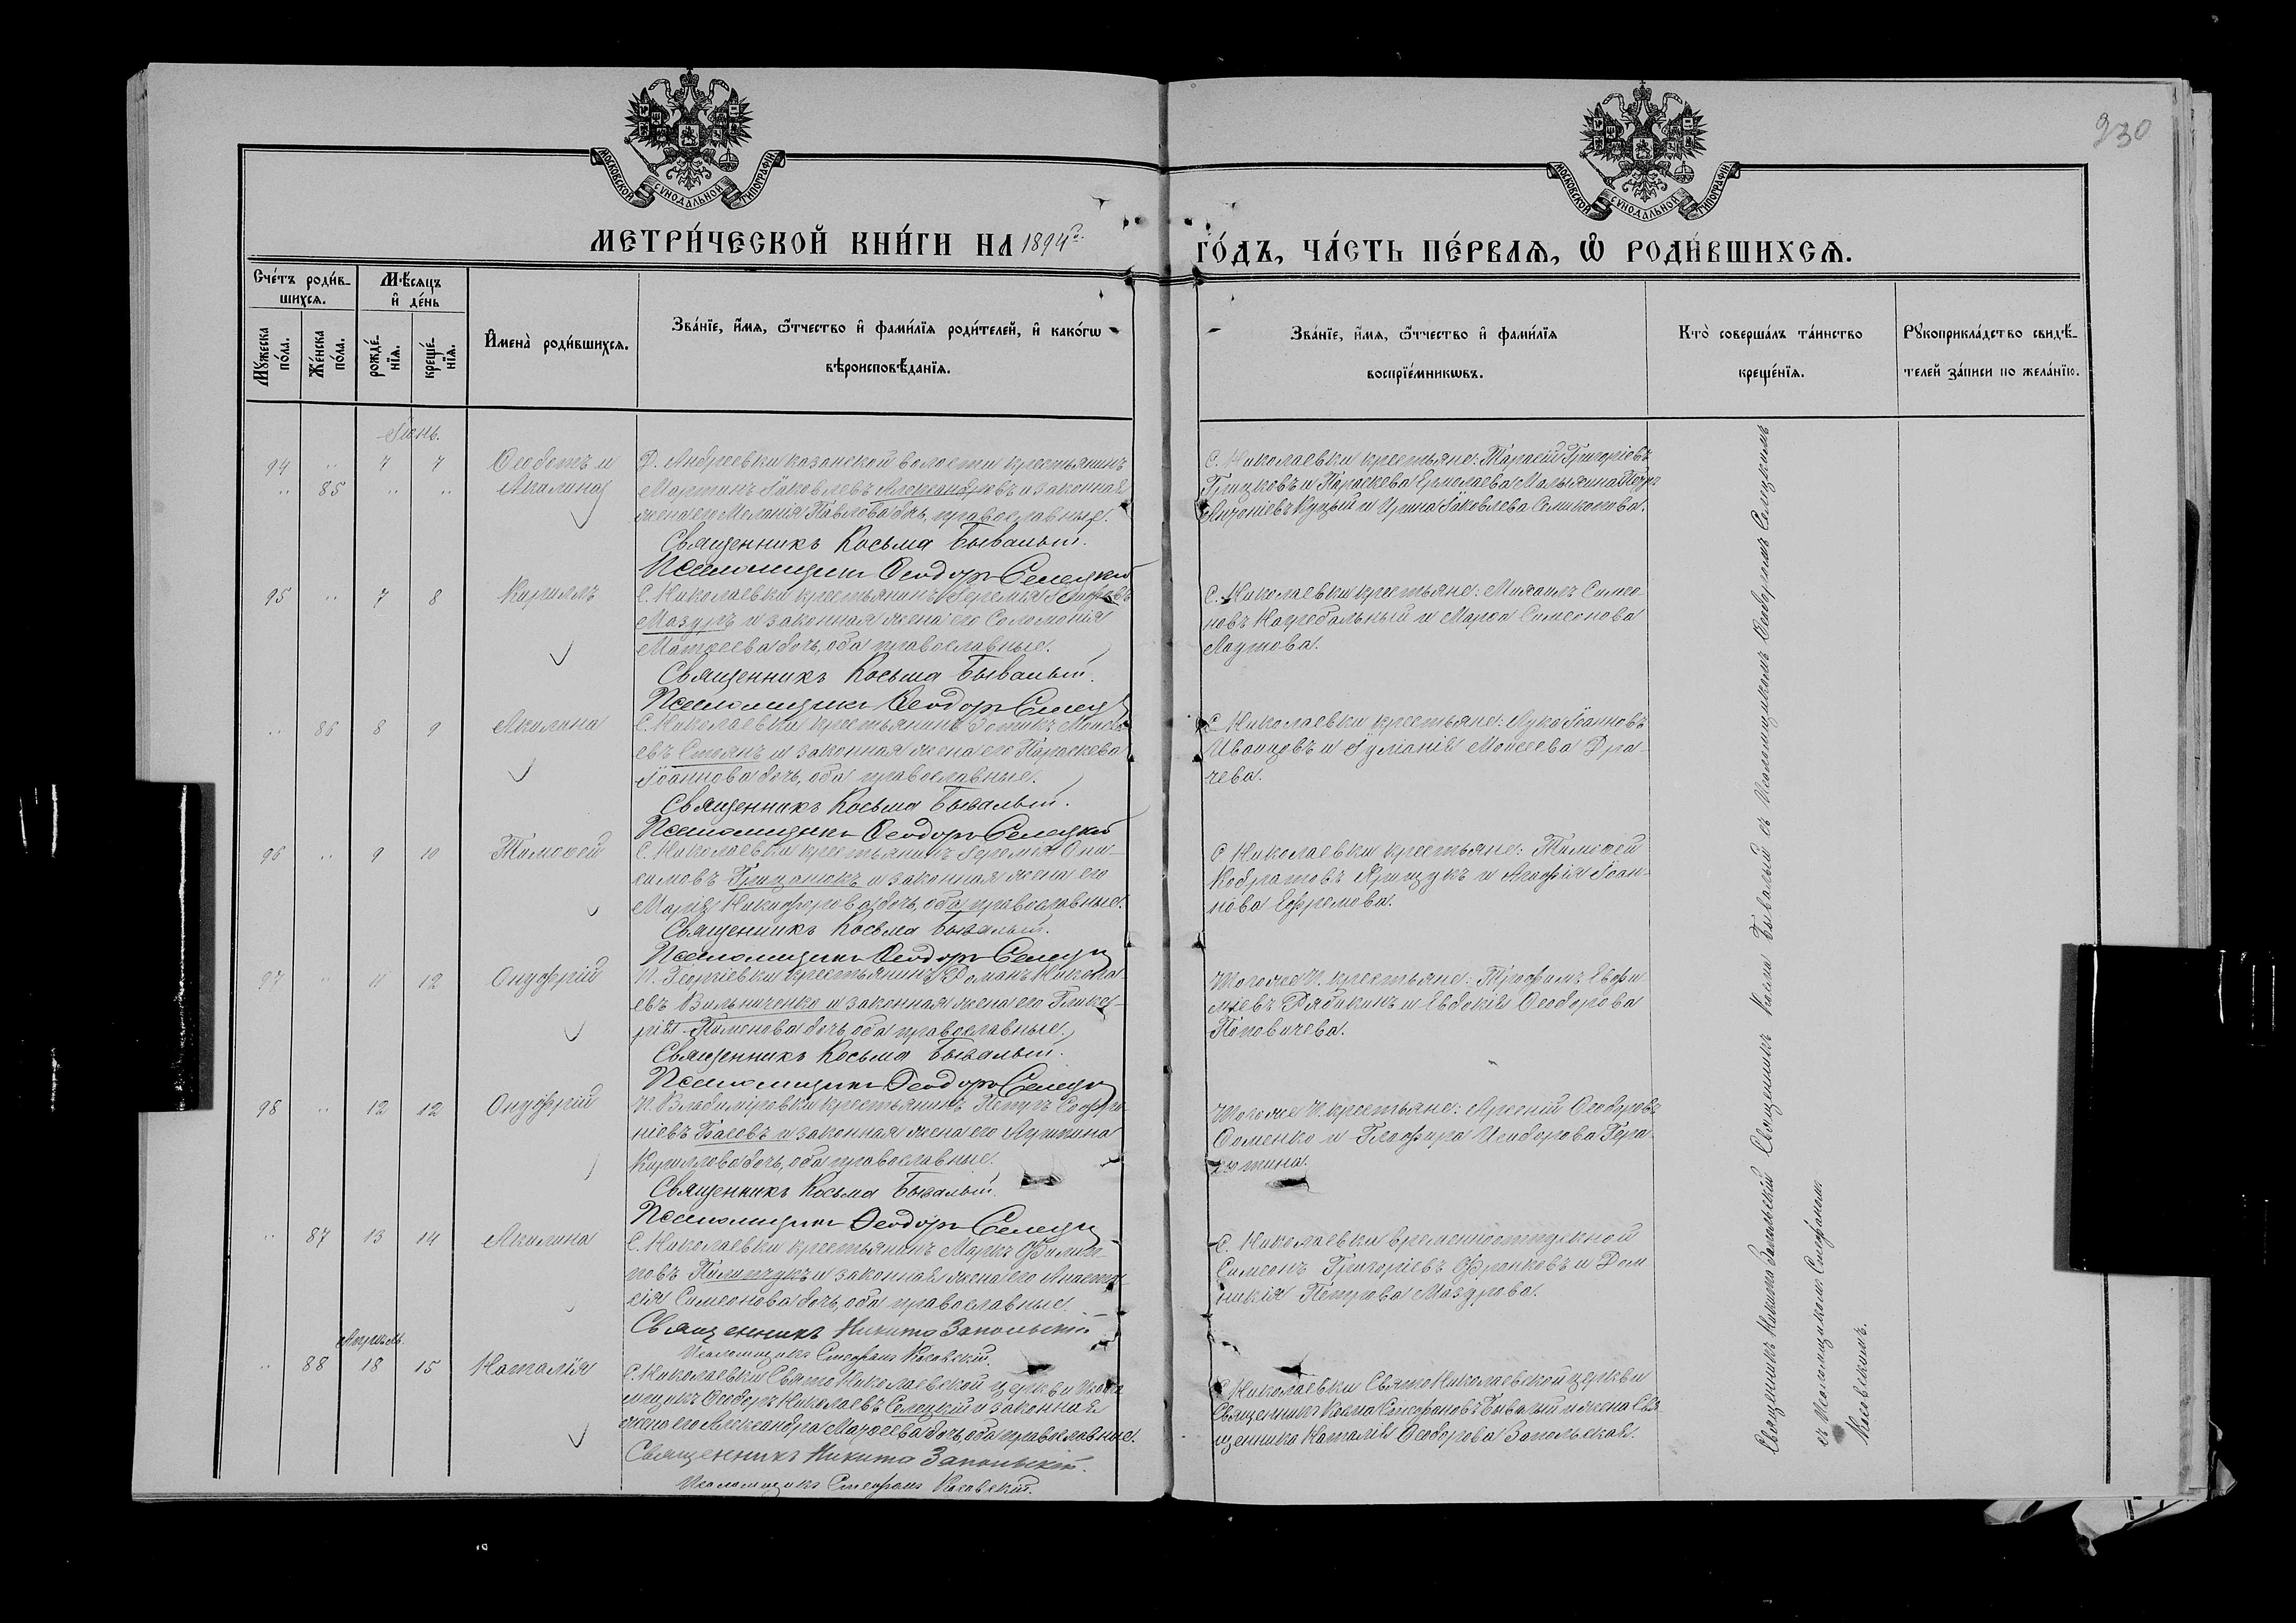 230
МОСКОВСКОЙ СѴНОДАЛЬНОЙ ТИПОГРАФІИ
МОСКОВСКОЙ СѴНОДАЛЬНОЙ ТИПОГРАФІИ
МЕТРИ́ЧЕСКОЙ КНИ́ГИ НА 1894й
ГО́ДЪ, ЧА́СТЬ ПЕ́РВАѦ, Ѽ РОДИ́ВШИХСѦ.
Сче́тъ роди́в-
шихсѧ.
Мꙋ́жеска по́ла.
Же́нска по́ла.
Мѣ́сяцъ
и҆ де́нь
рожде́-
нїѧ.
креще́-
нїѧ.
И҆мена̀ роди́вшихсѧ.
Зва́нїе, и҆́мѧ, ѻ҆́тчество и҆ фами́лїѧ роди́телей, и҆ како́гѡ
вѣроисповѣ́данїѧ.
Зва́нїе, и҆́мѧ, ѻ҆́тчество и҆ фами́лїѧ
воспрїе́мникѡвъ.
Кто̀ соверша́лъ та́инство
креще́нїѧ.
Рꙋкоприкла́дство свидѣ́-
телей за́писи по жела́нїю.
Іюнь.
94 " 7 7 Ѳеодотъ и
" 85 " " Акилина
Д. Андреевки казанской волости крестьянинъ
Мартинъ Іаковлевъ Александровъ и законная
жена его Меланія Павлова дочь, православные.
Священникъ Косьма Бывалый.
Псаломщикъ Ѳеодоръ Селецкій
С. Николаевки крестьяне: Тарасій Григоріевъ
Грицковъ и Параскева Ермолаева Петръ
Антоніевъ Куцый и Ирина Іаковлева
95 " 7 8 Кириллъ
С. Николаевки крестьянинъ Іеремія
Мазуръ и законная жена его Соломонія
Матѳеева дочь, оба православные.
Священникъ Косьма Бывалый.
Псаломщикъ Ѳеодоръ Селецкій
С. Николаевки крестьяне: Михаилъ Симео-
новъ и Марѳа Симеонова
" 86 8 9 Акилина
С. Николаевки крестьянинъ Зотикъ Моисе-
евъ Стоянъ и законная жена его Параскева
Іоаннова дочь, оба православные.
Священникъ Косьма Бывалый.
Псаломщикъ Ѳеодоръ Селецкій
С. Николаевки крестьяне: Лука Іоанновъ
Иванцовъ и Іуліанія Моисеева Дра-
чева.
96 " 9 10 Тимоѳей
С. Николаевки крестьянинъ Іеремія Они-
симовъ Грицанюкъ и законная жена его
Марія Никифорова дочь, оба православные.
Священникъ Косьма Бывалый.
Псаломщикъ Ѳеодоръ Селецкій
С. Николаевки крестьяне: Тимоѳей
Кодратовъ и Агафія Іоан-
нова Ефремова.
97 " 11 12 Онуфрій
П. Георгіевки крестьянинъ Романъ
евъ Вильниченко и законная жена его Глике-
рія Пименова дочь, оба православные.
Священникъ Косьма Бывалый.
Псаломщикъ Ѳеодоръ Селецкій
Того же П. крестьяне: Трофимъ Евфи-
міевъ Рябикинъ и Евдокія Ѳеодорова
Поповичева.
98 " 12 12 Онуфрій
П. Владиміровки крестьянинъ Петръ Софро-
ніевъ Басовъ и законная жена его
Кириллова дочь, оба православные.
Священникъ Косьма Бывалый.
Псаломщикъ Ѳеодоръ Селецкій
Того же П. крестьяне: Арсеній Ѳеодоровъ
Ѳоменко и Глафира Исидорова
" 87 13 14 Акилина
С. Николаевки крестьянинъ Маркъ Филип-
повъ Пилипчукъ и законная жена его Анаста-
сія Симеонова дочь, оба православные.
Священникъ Никита Запольскій
Псаломщикъ Стефанъ Косовскій.
С. Николаевки временноотпускной
Симеонъ Григоріевъ Франковъ и Дом-
никія Петрова Мазурова.
Апрѣль.
" 88 18 15 Наталія
С. Николаевки Свято Николаевской церкви Псало-
мщикъ Ѳеодоръ Николаевъ Селецкій и законная
жена его Александра дочь, оба православные.
Священникъ Никита Запольскій.
Псаломщикъ Стефанъ Косовскій.
С. Николаевки Свято Николаевской церкви
Священникъ Косма Стефановъ Бывалый и жена Свя-
щенника Наталія Ѳеодорова Запольская.
Священникъ Косма Бывалый съ Псаломщикомъ Ѳеодоромъ Селецкимъ
Священникъ Никита Запольскій
съ Псаломщикомъ Стефаномъ
Косовскимъ.